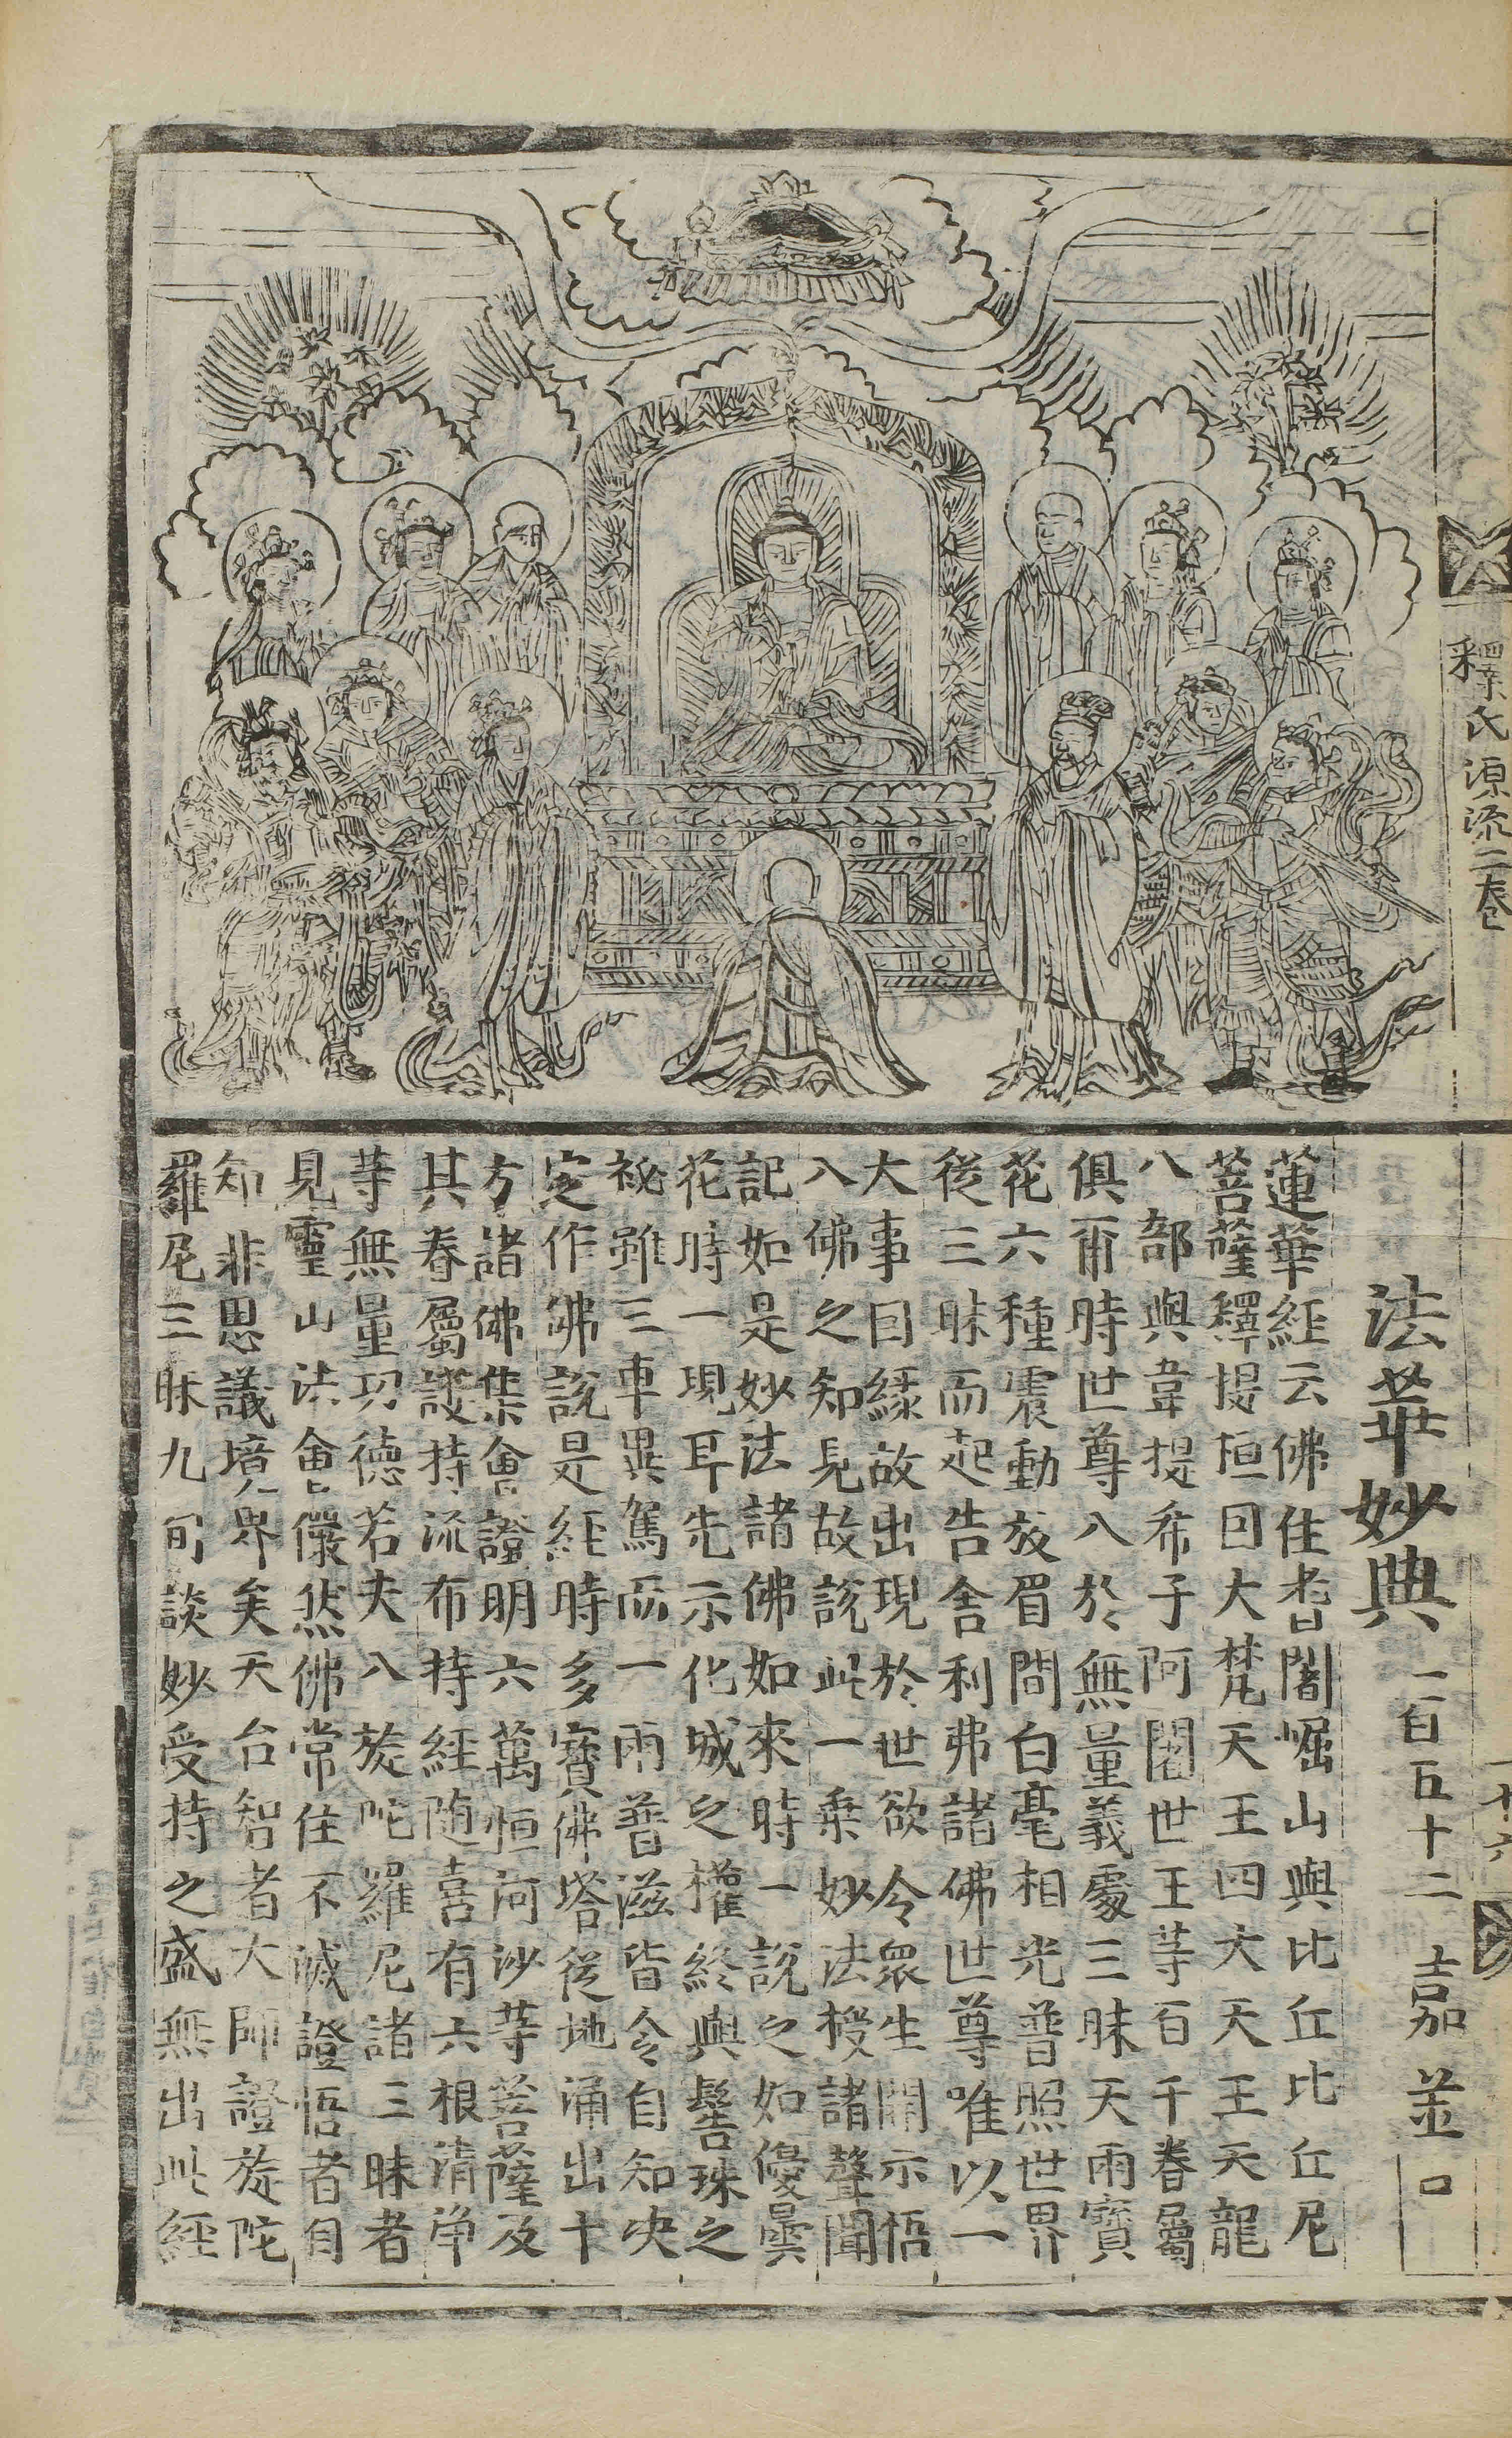 釋氏源流二卷
法華妙典 二百五十二 嘉 並 口
蓮華經云佛住耆闍崛山與比丘比丘尼
菩薩釋提桓因大梵天王四大天王天龍
八部與韋提希子阿闍世王等百千眷屬
俱爾時世尊入於無量義處三昧天雨寶
花六種震動放眉間白毫相光普照世界
從三昧而起告舍利弗諸佛世尊唯以一
大事因緣故出現於世欲令眾生開示悟
入佛之知見故說此一乗妙法授諸聲聞
記如是妙法諸佛如來時一說之如優曇
花時一現耳先示化城之權終與髻珠之
祕雖三車異駕而一雨普滋皆令自知決
定作佛說是經時多寶佛塔從地涌出十
方諸佛集會證明六萬恒河沙等菩薩及
其眷屬護持流布持經随喜有六根清淨
等無量功德若夫入旋陀羅尼諸三昧者
見靈山法會儼然佛常住不滅證悟者自
知非思議境界矣天台智者大師證旋陀
羅尼三昧九旬談妙受持之盛無出此經